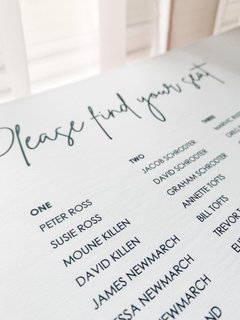 Please find your seat
ONE
PETER ROSS
SUSIE ROSS
MOUNE KILLEN
DAVID KILLEN
JAMES NEWMARCH
NEWMARCH
TWO
JACOB SCHRODTER
DAVID SCHRODTER
GRAHAM SCHRODTER
ANNETTE TOFTS
BILL TOFTS
THREE